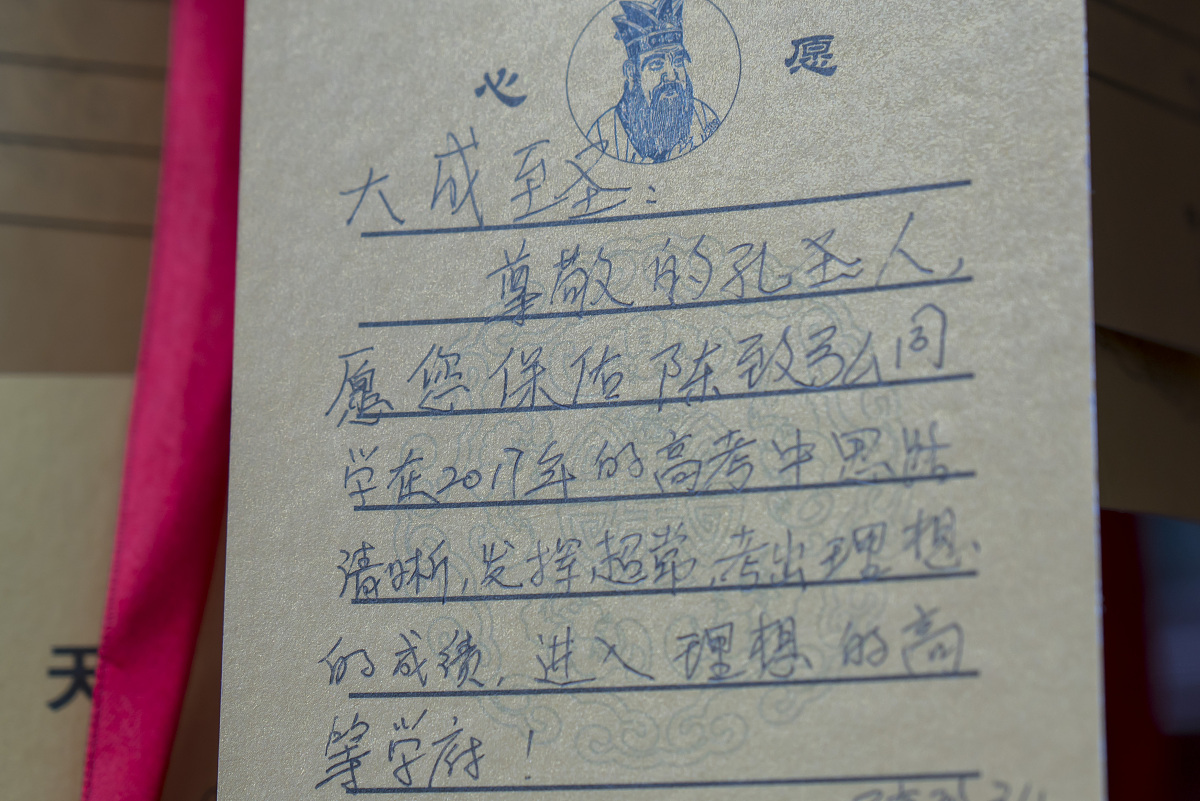 心愿
大成至圣：
尊敬的孔圣人，
愿您保佑陈致弘同
学在2017年的高考中思路
清晰，发挥超常，考出理想
的成绩，进入理想的高
等学府！
天